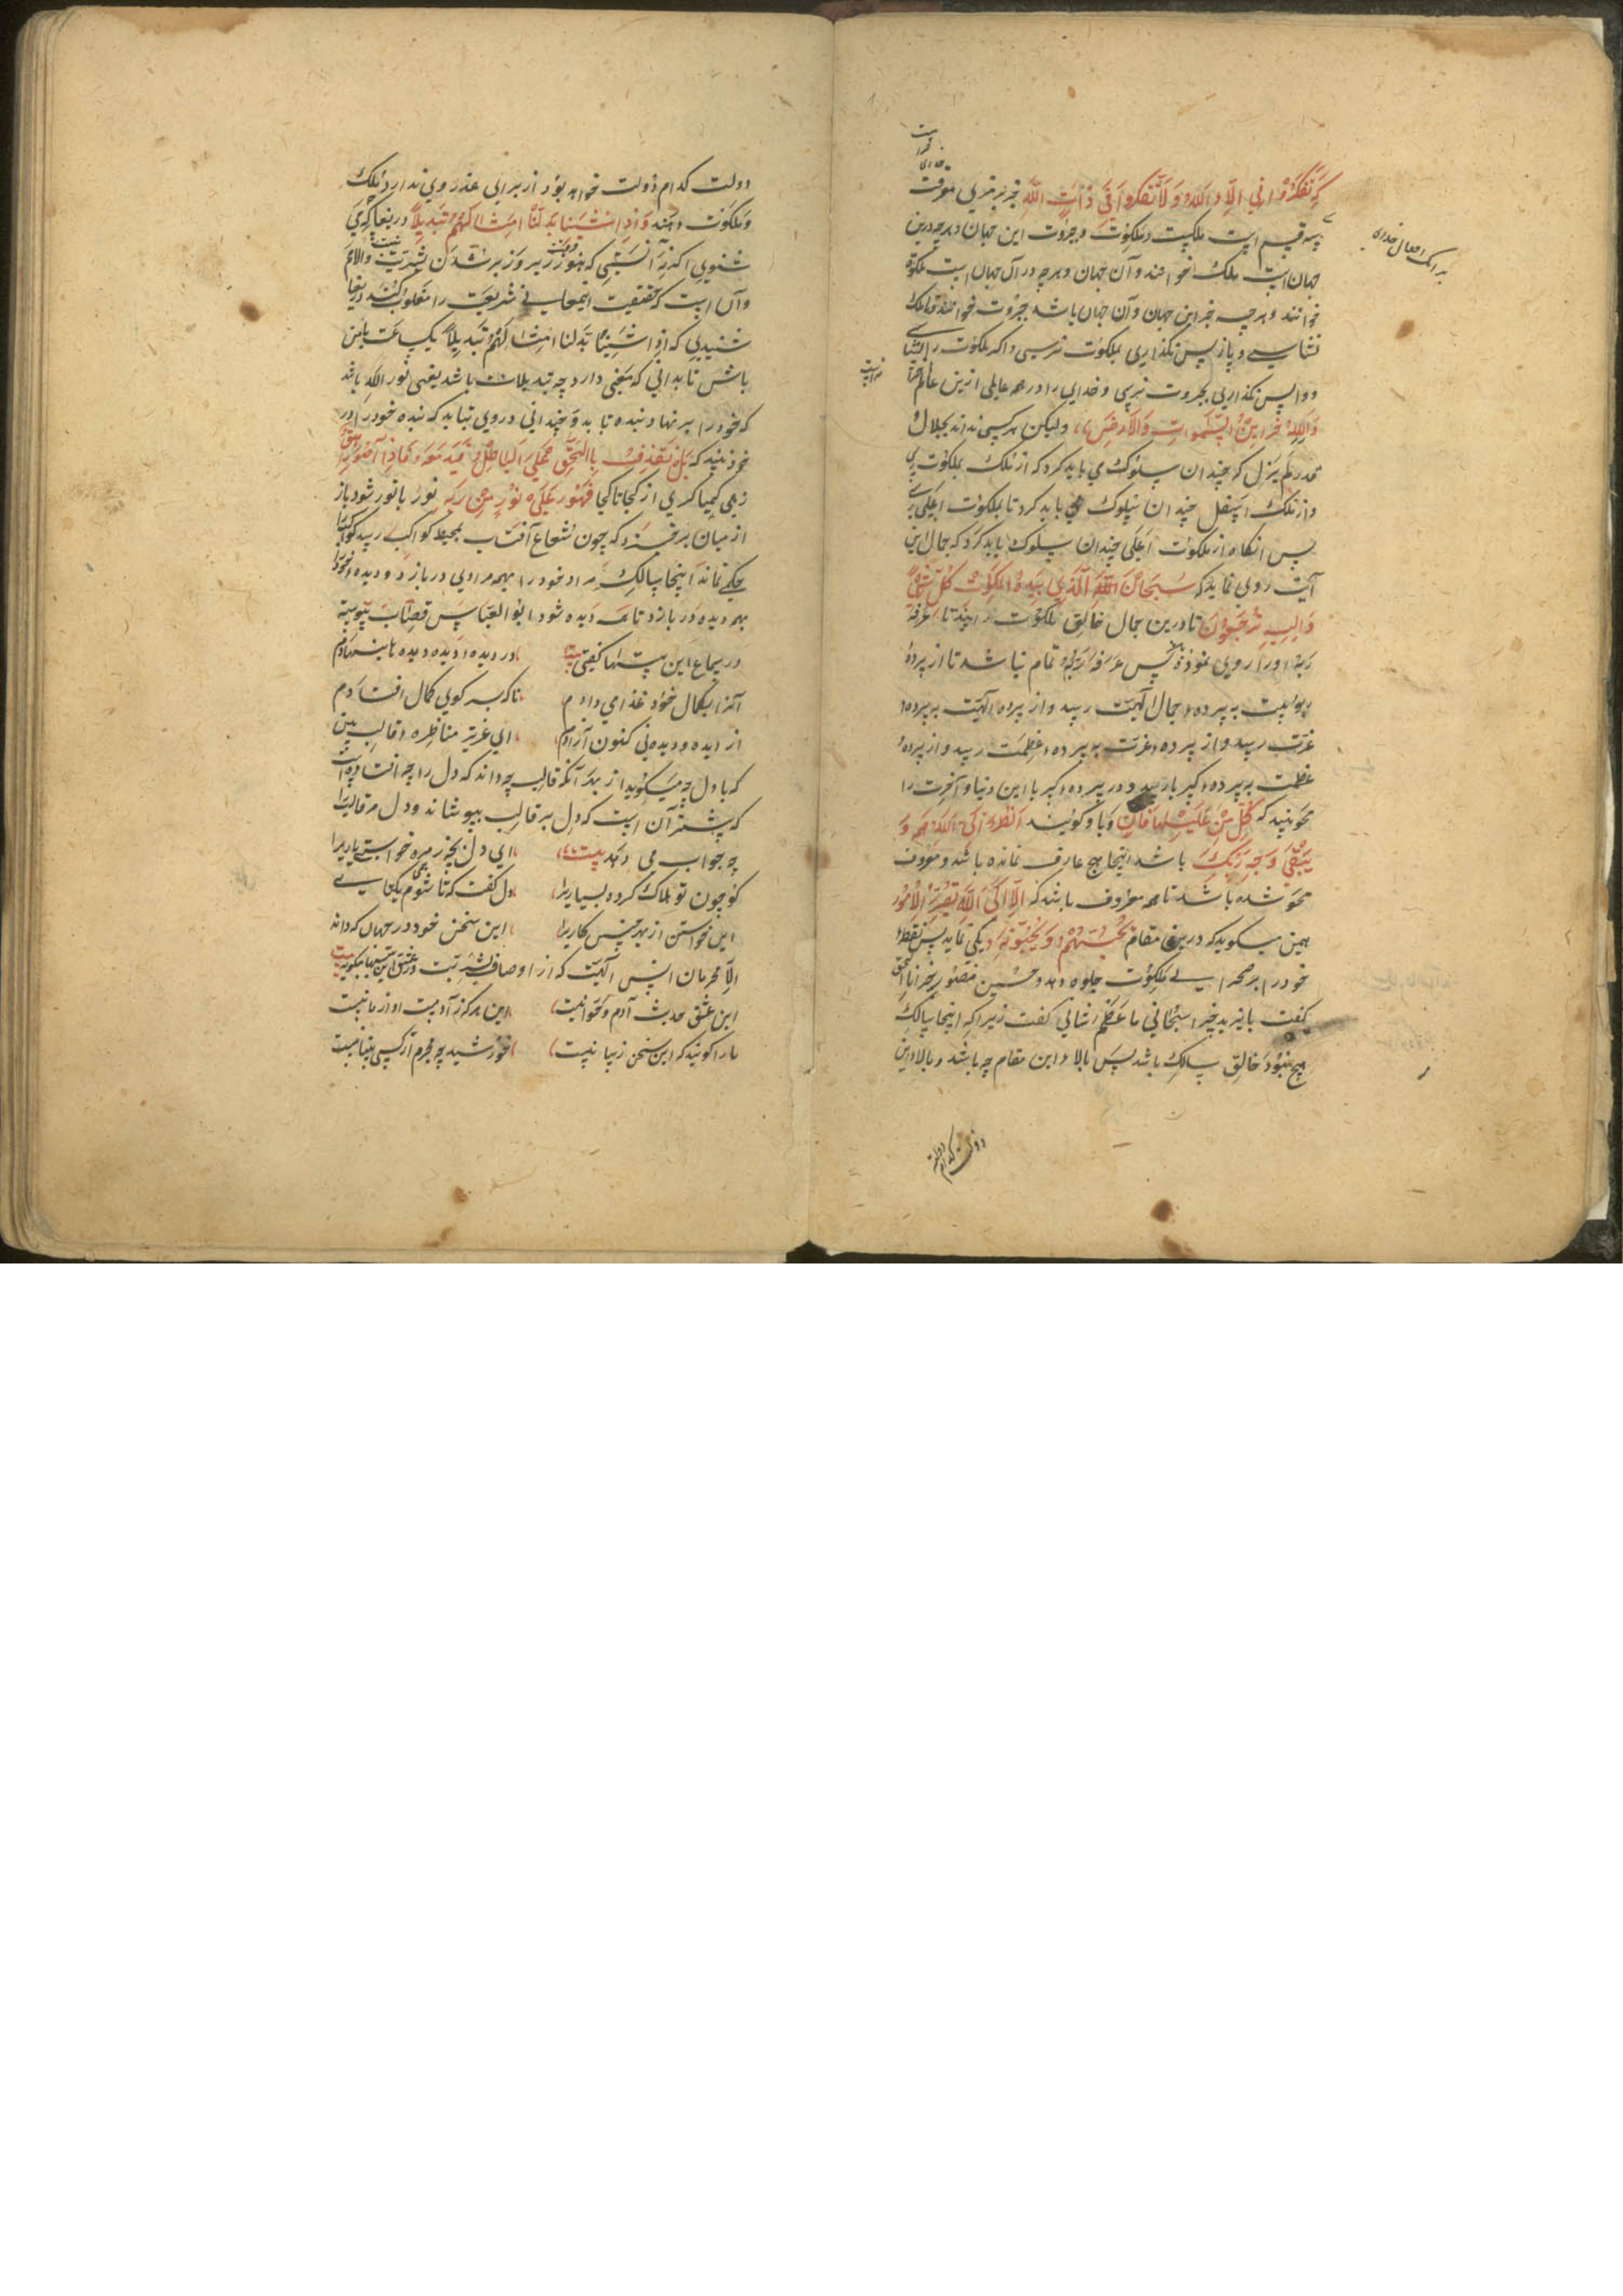 که تفکروا فی آلاء الله ولا تتفکروا فی ذات الله جز برمزی معرفت
سه قسم است ملکیت و ملکوت و جبروت این جهان و هرچه درین
جهان است ملک خوانند و آن جهان و هرچه در آن جهان است ملکوت
خوانند و هرچه جز این جهان و آن جهان باشد جبروت خوانند تا ملک
نشناسی و باز پس نگذاری بملکوت نرسی و اگر ملکوت را نشناسی
و واپس نگذاری بجبروت نرسی و خدای را در هر عالمی ازین عالمها
ولله خزاین السموات والارض ولیکن هر کسی نداند بجلال
قدر لم یزل که چندان سلوک می باید کرد که از ملک بملکوت رسی
و از ملک اسفل چندان سلوک می باید کرد تا بملکوت اعلی رسی
پس آنگاه از ملکوت اعلی چندان سلوک باید کرد که جمال این
آیت روی نماید که سبحان الله الذی بیده ملکوت کل شی
والیه ترجعون تا درین جمال خالق ملکوت را بیند تا عرفه
ربه او را روی نموده پس عرفه ربه تمام نباشد تا از پرده
ربوبیت به پرده جمال الهیت رسد و از پرده الهیت به پرده
عزت رسد و از پرده عزت به پرده عظمت رسد و از پرده
عظمت به پرده کبر یا رسد و در پرده کبریا این دنیا و آخرت را
محو بیند که کل من علیها فان و با او گویند انظر الی الله هم و
یبقی وجه ربک باشد اینجا هیچ عارف نمانده باشد و معروف
محو شده باشد تا همه معروف باشد که الا الی الله تصیر الامور
همین میگوید که درین مقام یحبهم و یحبونه یکی نماید پس نقطه
خود را بر صحرای ملکوت جلوه دهد و حسین منصور بجز انا الحق
گفت بایزید جز سبحانی ما اعظم شانی گفت زیرا که اینجا سالک
هیچ نبود خالق سالک باشد پس بالاء این مقام چه باشد و بالاء این
دولت کدام دولت
دولت کدام دولت خواهد بود از برای عذر وی ندارد ملک
و ملکوت دهند و اذا شئنا بدلنا امثالهم تبدیلا دریغا که می
شنوی اگر نه آنستی که هنوز زیر و زبر شدن بشریت والا م
و آن است که حقیقت اینجا نی شریعت را مغلوب کند دریغا
شنیدی که اذا شئنا بدلنا امثالهم تبدیلا یک ساعت با من
باش تا بدانی که معنی دارد چه تبدیلات باشد یعنی نور الله باشد
که خود را بر نهاد بنده تا بد و چندانی در وی بتابد که بنده خود را در
خود بیند که بل نقذف بالحق علی الباطل فیدمغه فاذا هو زاهق
زهی کیمیاگری از کجا تا کجا فهو علی نور من ربه نور با نور شود باز
از میان برخیزد که چون شعاع آفتاب بمحیط کواکب رسد کواکب را
حکمی نماند اینجا سالک مراد خود را بهمه مرادی دربازد و دیده خود را
بهمه دیده دربازد تا همه دیده شود ابوالعباس قصاب پیوسته
در سماع این بیتها گفتی بیت در دیده دیده دیده بنهادم
آنرا بکمال خود غذا می دادم تا که بسر کوی کمال افتادم
از دیده و دیدنی کنون آزادم ای عزیز مناظره قالب بین
که با دل چه میگوید از بهر آنکه قالب چه داند که دل را چه افتاده است
که پشته آن است که دل بر قالب بپوشاند و دل مر قالب را
چه جواب می دهد بیت ای دل بچه زهره خواستی یاری را
کو چون تو هلاک کرده بسیاری را دل گفت که تا شوم یکتایی
این خواستن از بهر چنین کاری را این سخن خود در جهان که داند
الا محرمان انس الهیت که از اوصاف بشریت در عشق این بیتها میگوید بیت
این عشق حدیث آدم و حوا نیست این مرکز آدمیت او از ما نیست
ما را گویند که این سخن زیبا نیست خورشید چه مجرم ار کسی بینا نیست